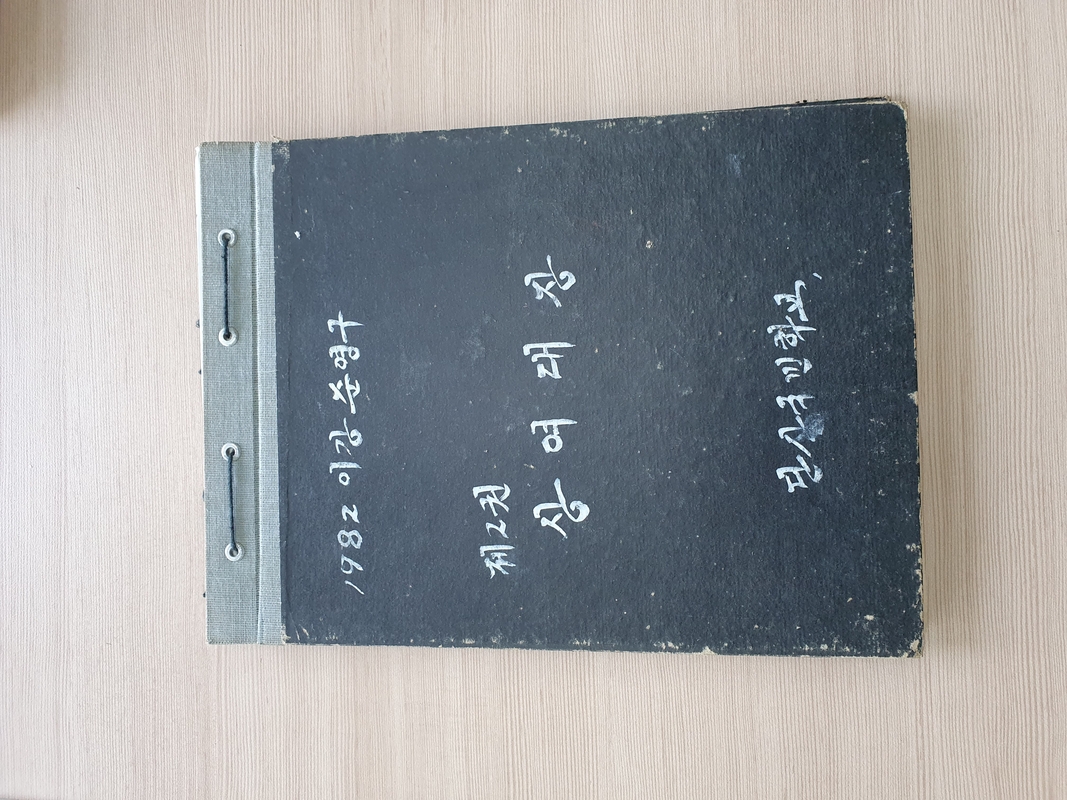 1982 이강 준영구
제2권
상 여 대 장
단산국민학교,